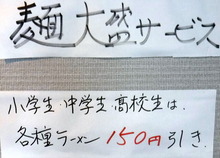 麺大盛サービス
小学生・中学生・高校生は、
各種ラーメン150円引き